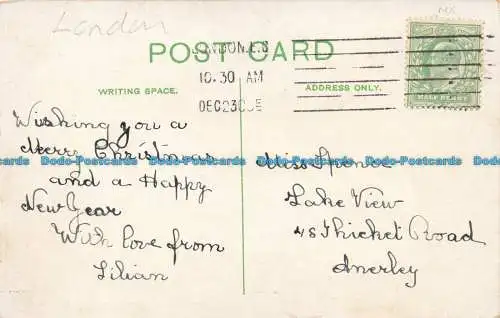 London
MX
POST CARD
LONDON, E.S
10.30 AM
DEC 23 05
WRITING SPACE.
ADDRESS ONLY.
HALF PENNY
Wishing you a
Merry Christmas
and a Happy
New Year
With love from
Lilian
Dodo-Postcards Dodo-Postcards Dodo-Postcards Dodo-Postcards Dodo-Postcards
Miss Spence
Lake View
48 Thicket Road
Anerley